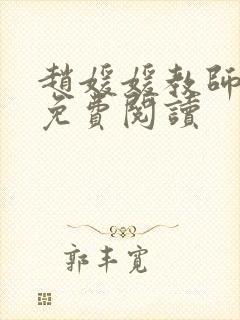 趙媛媛教師
免費閱讀
郭丰寬